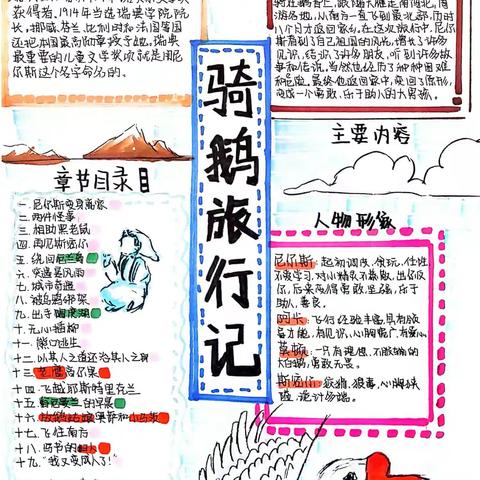 获得者,1914年当选瑞典学院院
长,挪威、芬兰、比利时和法国等国
还把本国最高勋章授予她,瑞典
最重要的儿童文学奖项就是用尼
尔斯这个名字命名的。
游各地,从南方一直飞到最北部,历时
八个月才返回家乡。在这次旅行中,尼尔
斯看到了自己祖国的风光,增长了许多
见识,结识了许多朋友,听到许多故
事和传说,当然也经历了种种困难
和危险,最终他返回家中,变回了原形,
变成一个勇敢、乐于助人的大男孩。
骑鹅旅行记
主要内容
章节目录
一、尼尔斯变身离家
二、两件怪事
三、相助黑老鼠
四、
五、绕回厄兰岛
六、突遇暴风雨
七、城市奇遇
八、被乌鸦绑架
九、出手
十、无心插柳
十一、熊口逃生
十二、以其人之道还治其人之身
十三、
十四、飞越耶斯特里克兰
十五、
十六、放鹅姑娘奥萨和小马茨
十七、飞往南方
十八、
十九、“我又变成人了!”
人物形象
尼尔斯:起初调皮、贪玩、任性
不爱学习,对小精灵不尊敬,出尔反
尔,后来变得勇敢、坚强,乐于
助人,善良。
阿卡:飞行经验丰富,具有领
导才能,有见识,心胸宽广,有爱心。
莫顿:一只有理想、不服输的
大白鹅,勇敢无畏。
斯密尔:狡猾、狠毒、心胸狭
隘、诡计多端。